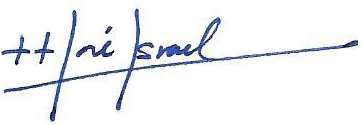 ++ José Israel